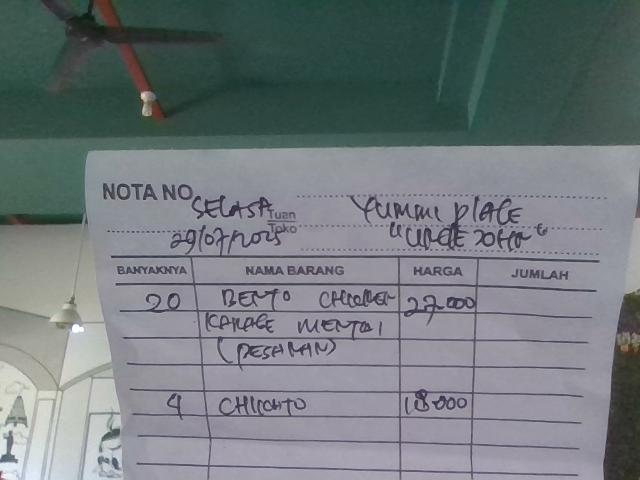 NOTA NO.
SELASA Tuan YUMMI PLACE
29/07/2025 Toko "UNCLE JOHN"
BANYAKNYA NAMA BARANG HARGA JUMLAH
20 BENTO CHICKEN 27.000
KARAGE MENTAI
(PESANAN)
4 18.000